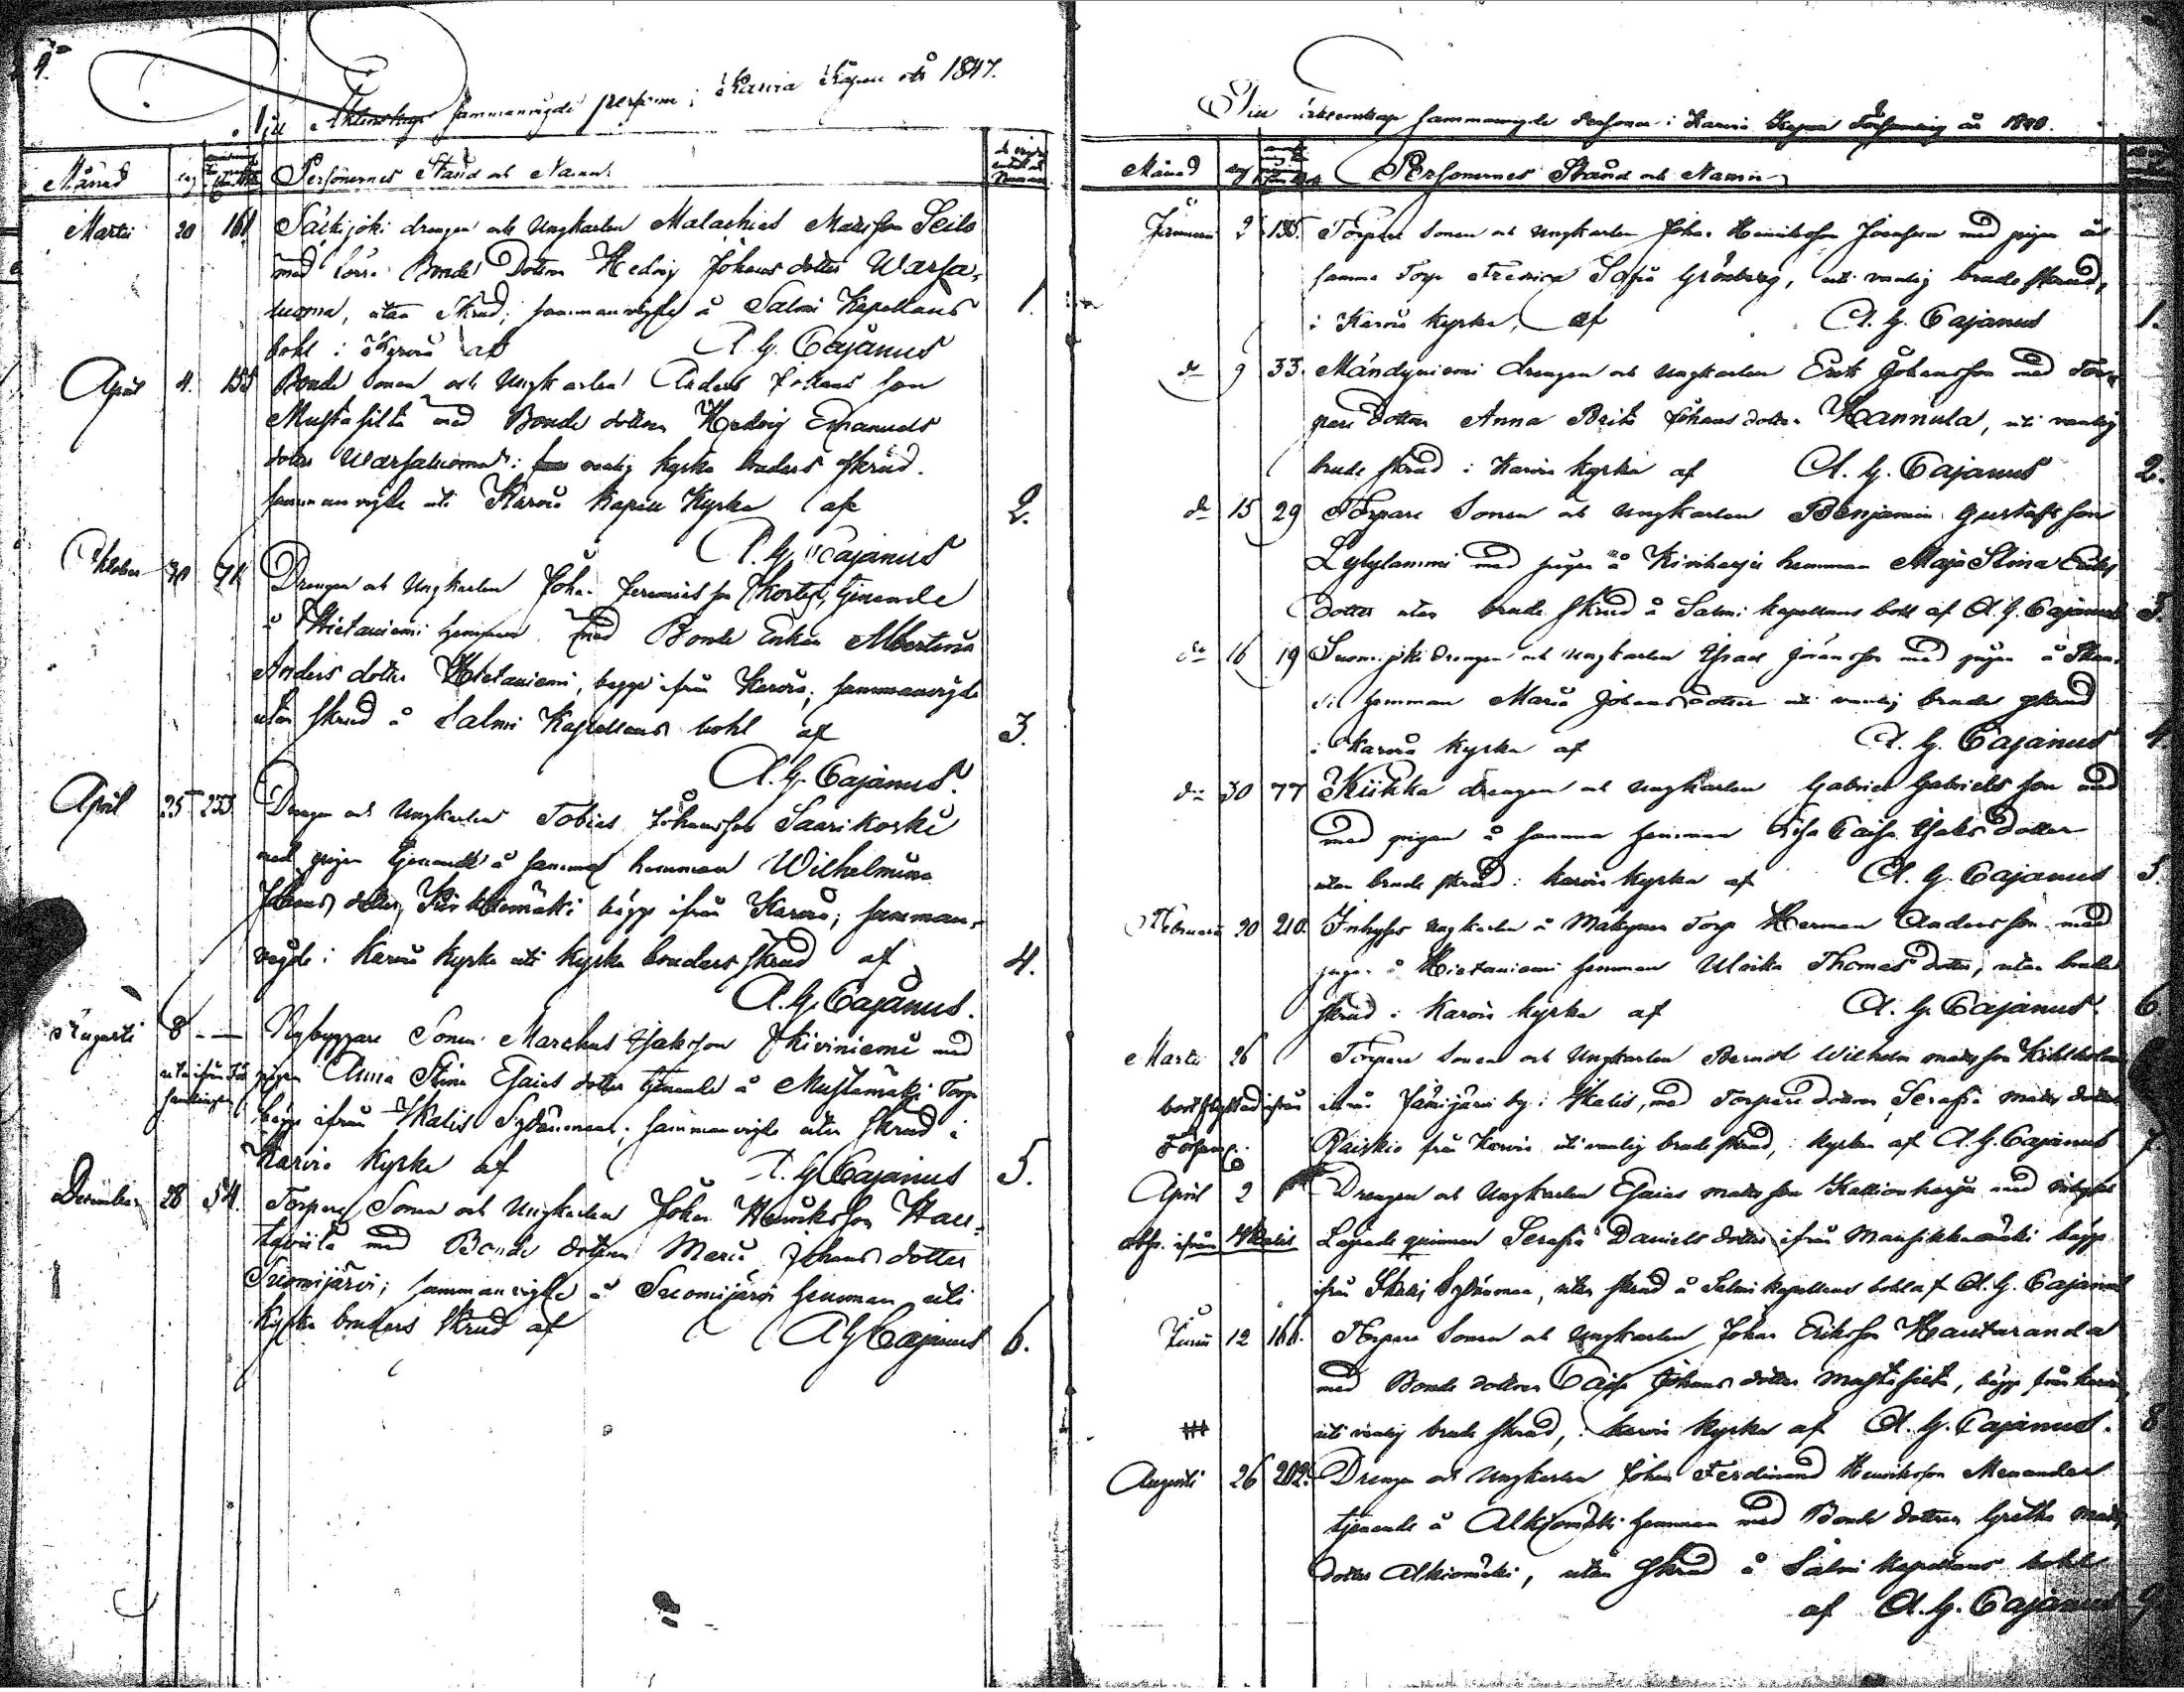 Till Äktenskap sammanvigde personer i Karvia Kapell år 1847.
Månad dag Personernes Stånd och Namn
Martii 20 161 Särkijoki drengen och Ungkarlen Malachias Matsson Seilo
med Bonde Dottren Hedvig Johans dotter Warsa-
luoma, utan Skrud; sammanvigde å Salmi Kapellans 1.
bohl i Karvia af A. G. Cajanus
April 4. 155 Bonde sonen och Ungkarlen Anders Johans son
Mustasilta med Bonde dottren Hedvig Emanuels
dotter Warsaluoma i vanlig Kyrko bruders skrud.
sammanvigde uti Karvia Kapell Kyrka af 2.
A. G. Cajanus
Oktober 30 Drengen och Ungkarlen Joha. Jeremias son Korte, tjenande
å Hietaniemi hemman med Bonde Enkan Albertina
Anders dotter Hietaniemi, begge ifrån Karvia, sammanvigde
utan skrud å Salmi Kapellans bohl af 3.
A. G. Cajanus.
April 25 253 Drengen och Ungkarlen Tobias Johansson Saarikoski
med pigan tjenande å samma hemman Wilhelmina
Johans dotter, begge ifrån Karvia; samman-
vigde i Karvia Kyrka uti Kyrko bruders skrud af 4.
A. G. Cajanus.
Augusti 8 — Nybyggare Sonen Marchus Isaksson Kiviniemi med
pigan Anna Stina Esaias dotter tjenande å Mustamäki Torp
begge ifrån Ikalis Sydänmaa; sammanvigde utan skrud i
Karvia Kyrka af A. G. Cajanus 5.
December 28 54. Torpare Sonen och Ungkarlen Johan Henriksson Hau-
taviita med Bonde dottren Maria Johans dotter
Suomijärvi; sammanvigde å Suomijärvi hemman uti
Kyrko bruders skrud af A G Cajanus 6.
Till äktenskap sammanvigde Personer i Karvia Kapell Församling år
Månad dag Personernes Stånd och Namn
Januarii 2 135. Torpare Sonen och Ungkarlen Johan Henriksson med pigan å
samma Torp Fredrica Sofia Grönberg, uti vanlig brude skrud,
i Karvia Kyrka, af A. G. Cajanus 1.
do 9 33. Mändyniemi drengen och Ungkarlen Erik Johansson med Tor-
pare dottren Anna Brita Johans dotter Hannula, uti vanlig
brude skrud i Karvia Kyrka af A. G. Cajanus 2.
do 15 29 Torpare Sonen och Ungkarlen Benjamin Gustafsson
Lylylammi med pigan å Kiviharju hemman Maja Stina Eriks
dotter utan brude skrud å Salmi kapellans bohl af A. G. Cajanus 3.
do 16 19 Suomijoki drengen och Ungkarlen Isaac Göransson med pigan å
hemman Maria Johans dotter uti vanlig brude skrud
i Karvia Kyrka af A. G. Cajanus 4
do 30 77 Kiikka drengen och Ungkarlen Gabriel Gabriels son med
med pigan å samma hemman Caisa Isaks dotter
utan brude skrud i Karvia Kyrka af A. G. Cajanus 5.
Februarii 20 210. Inhyses Ungkarlen å Mäkynen Torp Herman Andersson med
pigan å Hietaniemi hemman Ulrika Thomas dotter, utan brude
skrud i Karvia Kyrka af A. G. Cajanus. 6
Martii 26 Torpare Sonen och Ungkarlen Berndt Wilhelm Matsson
ifrån Jämijärvi by i Ikalis, med Torpare dottren Serafia Mats dotter
Raiskio från Karvia uti vanlig brude skrud, i Kyrkan af A. G. Cajanus 7
April 2 Drengen och Ungkarlen Esaias Matsson Kallionharju med
Ikalis Lägrade qvinnan Serafia Daniels dotter ifrån Mansikkamäki begge
ifrån Ikalis Sydänmaa, utan skrud å Salmi kapellans bohl af A. G. Cajanus
Junii 12 166. Torpare Sonen och Ungkarlen Johan Eriksson Hautaranda
med Bonde dottren Caisa Johans dotter Mustasilta, begge från Karvia,
uti vanlig brude skrud, i Karvia Kyrka af A. G. Cajanus. 8
Augusti 26 202. Drengen och Ungkarlen Johan Ferdinand Henriksson Menander
tjenande å Alkiomäki hemman med Bonde dottren Gretha Mats
dotter Alkiomäki, utan skrud å Salmi Kapellans bohl
af A. G. Cajanus 9